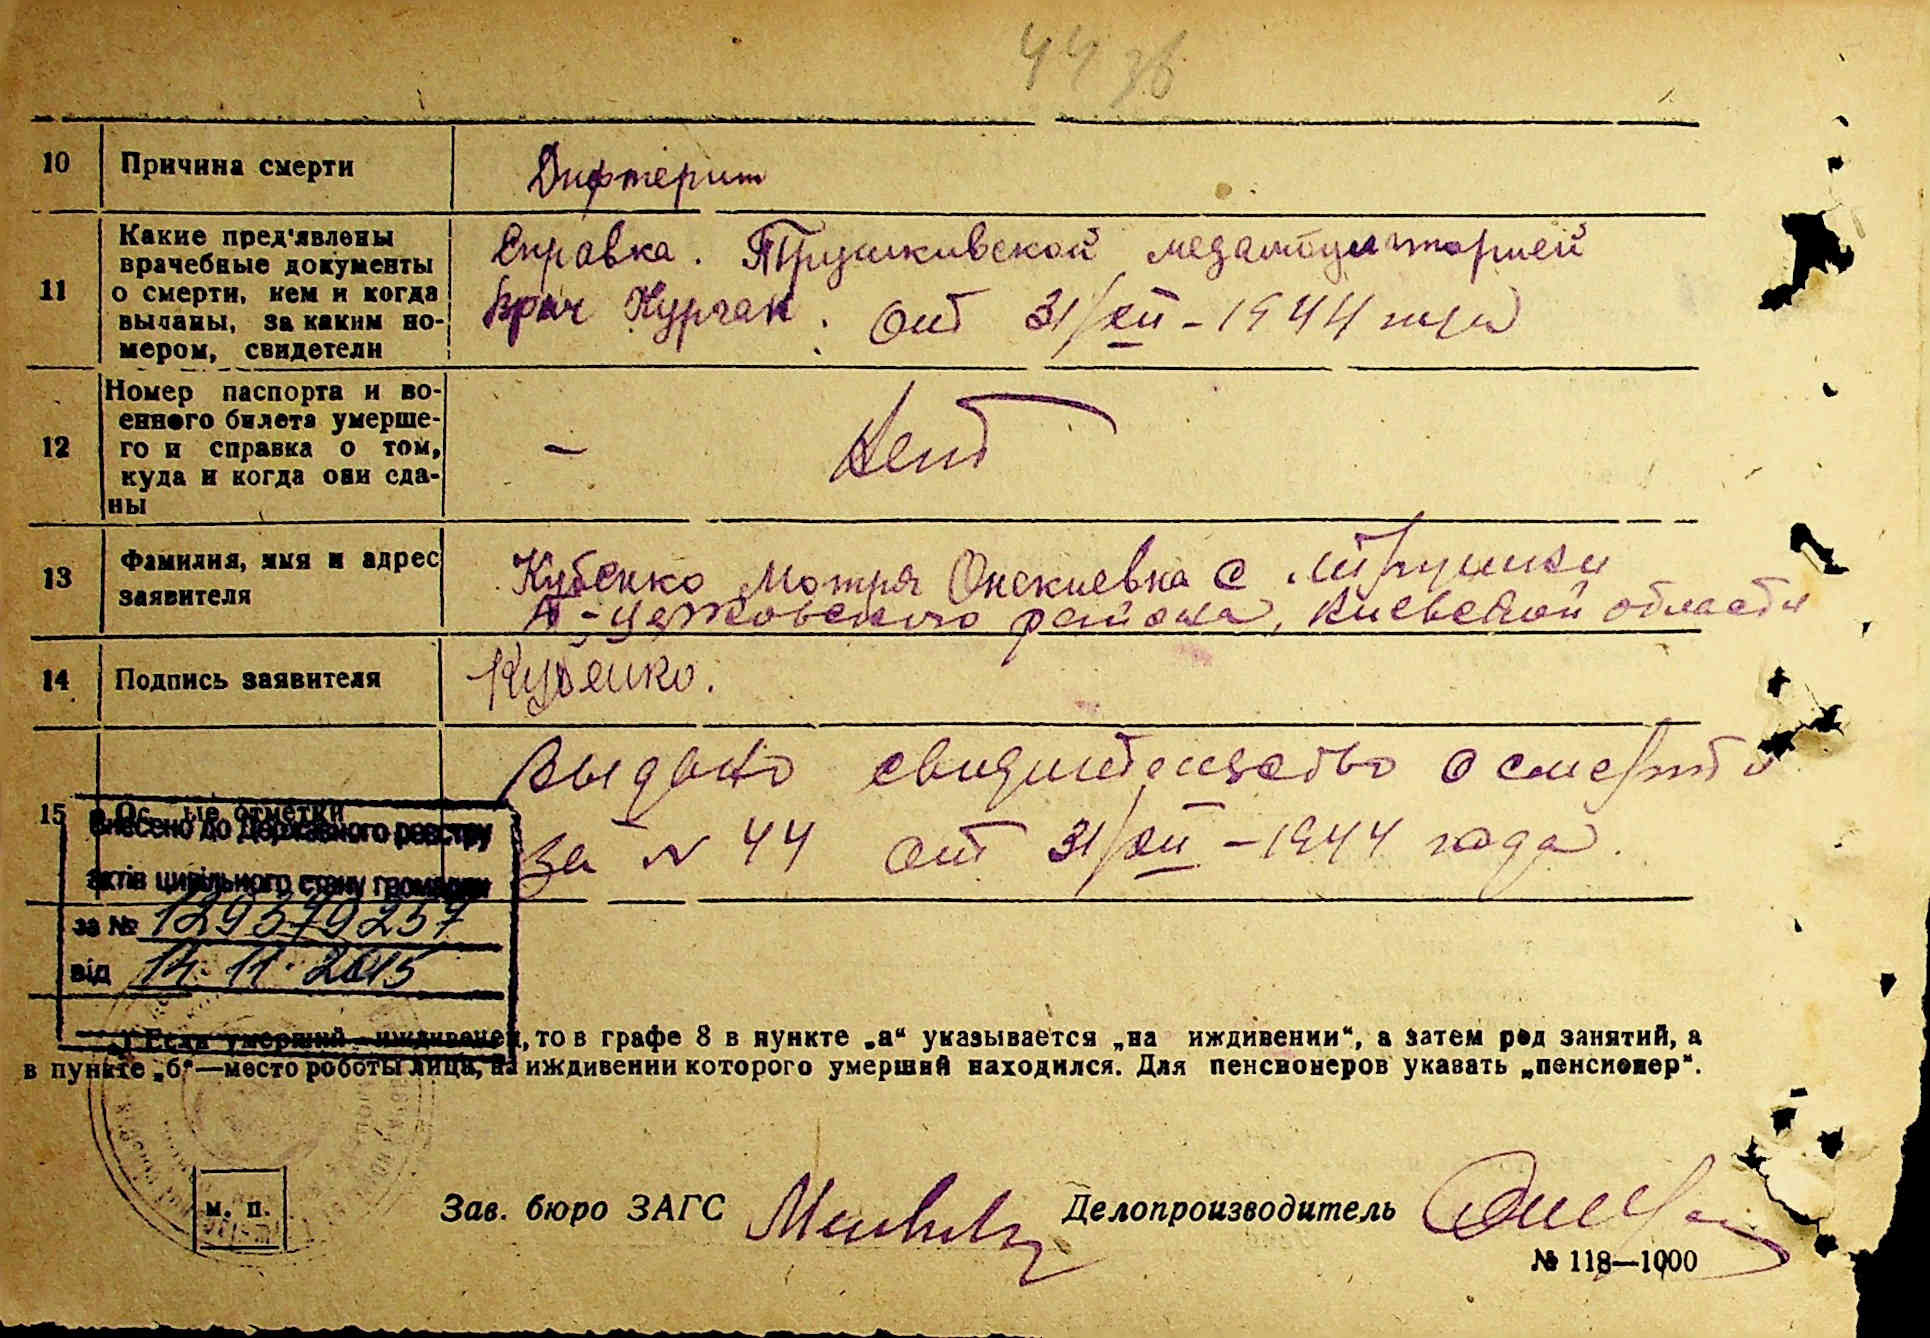 44 зв
10 Причина смерти Дифтерит
11 Какие пред'явлены врачебные документы о смерти, кем и когда выданы, за каким номером, свидетели
Справка. Трушкивской медамбулаторией
врач Курчак. от 31/XII - 1944 года
12 Номер паспорта и военного билета умершего и справка о том, куда и когда они сданы
- Нет
13 Фамилия, имя и адрес заявителя
Кубенко Мотря с. Трушки
района, Киевской области
14 Подпись заявителя Кубенко.
15 отметки
Выдано свидительство о смерти
за N 44 от 31/XII - 1944 года.
Внесено до Державного реєстру
актів цивільного стану громадян
за № 129379257
від 14.11.2015
Если умерший иждивенец, то в графе 8 в пункте „а“ указывается „на иждивении“, а затем род занятий, а
в пункте „б“—место роботы лица, на иждивении которого умерший находился. Для пенсионеров указать „пенсионер“.
м. п.
Зав. бюро ЗАГС Делопроизводитель
№ 118—1000